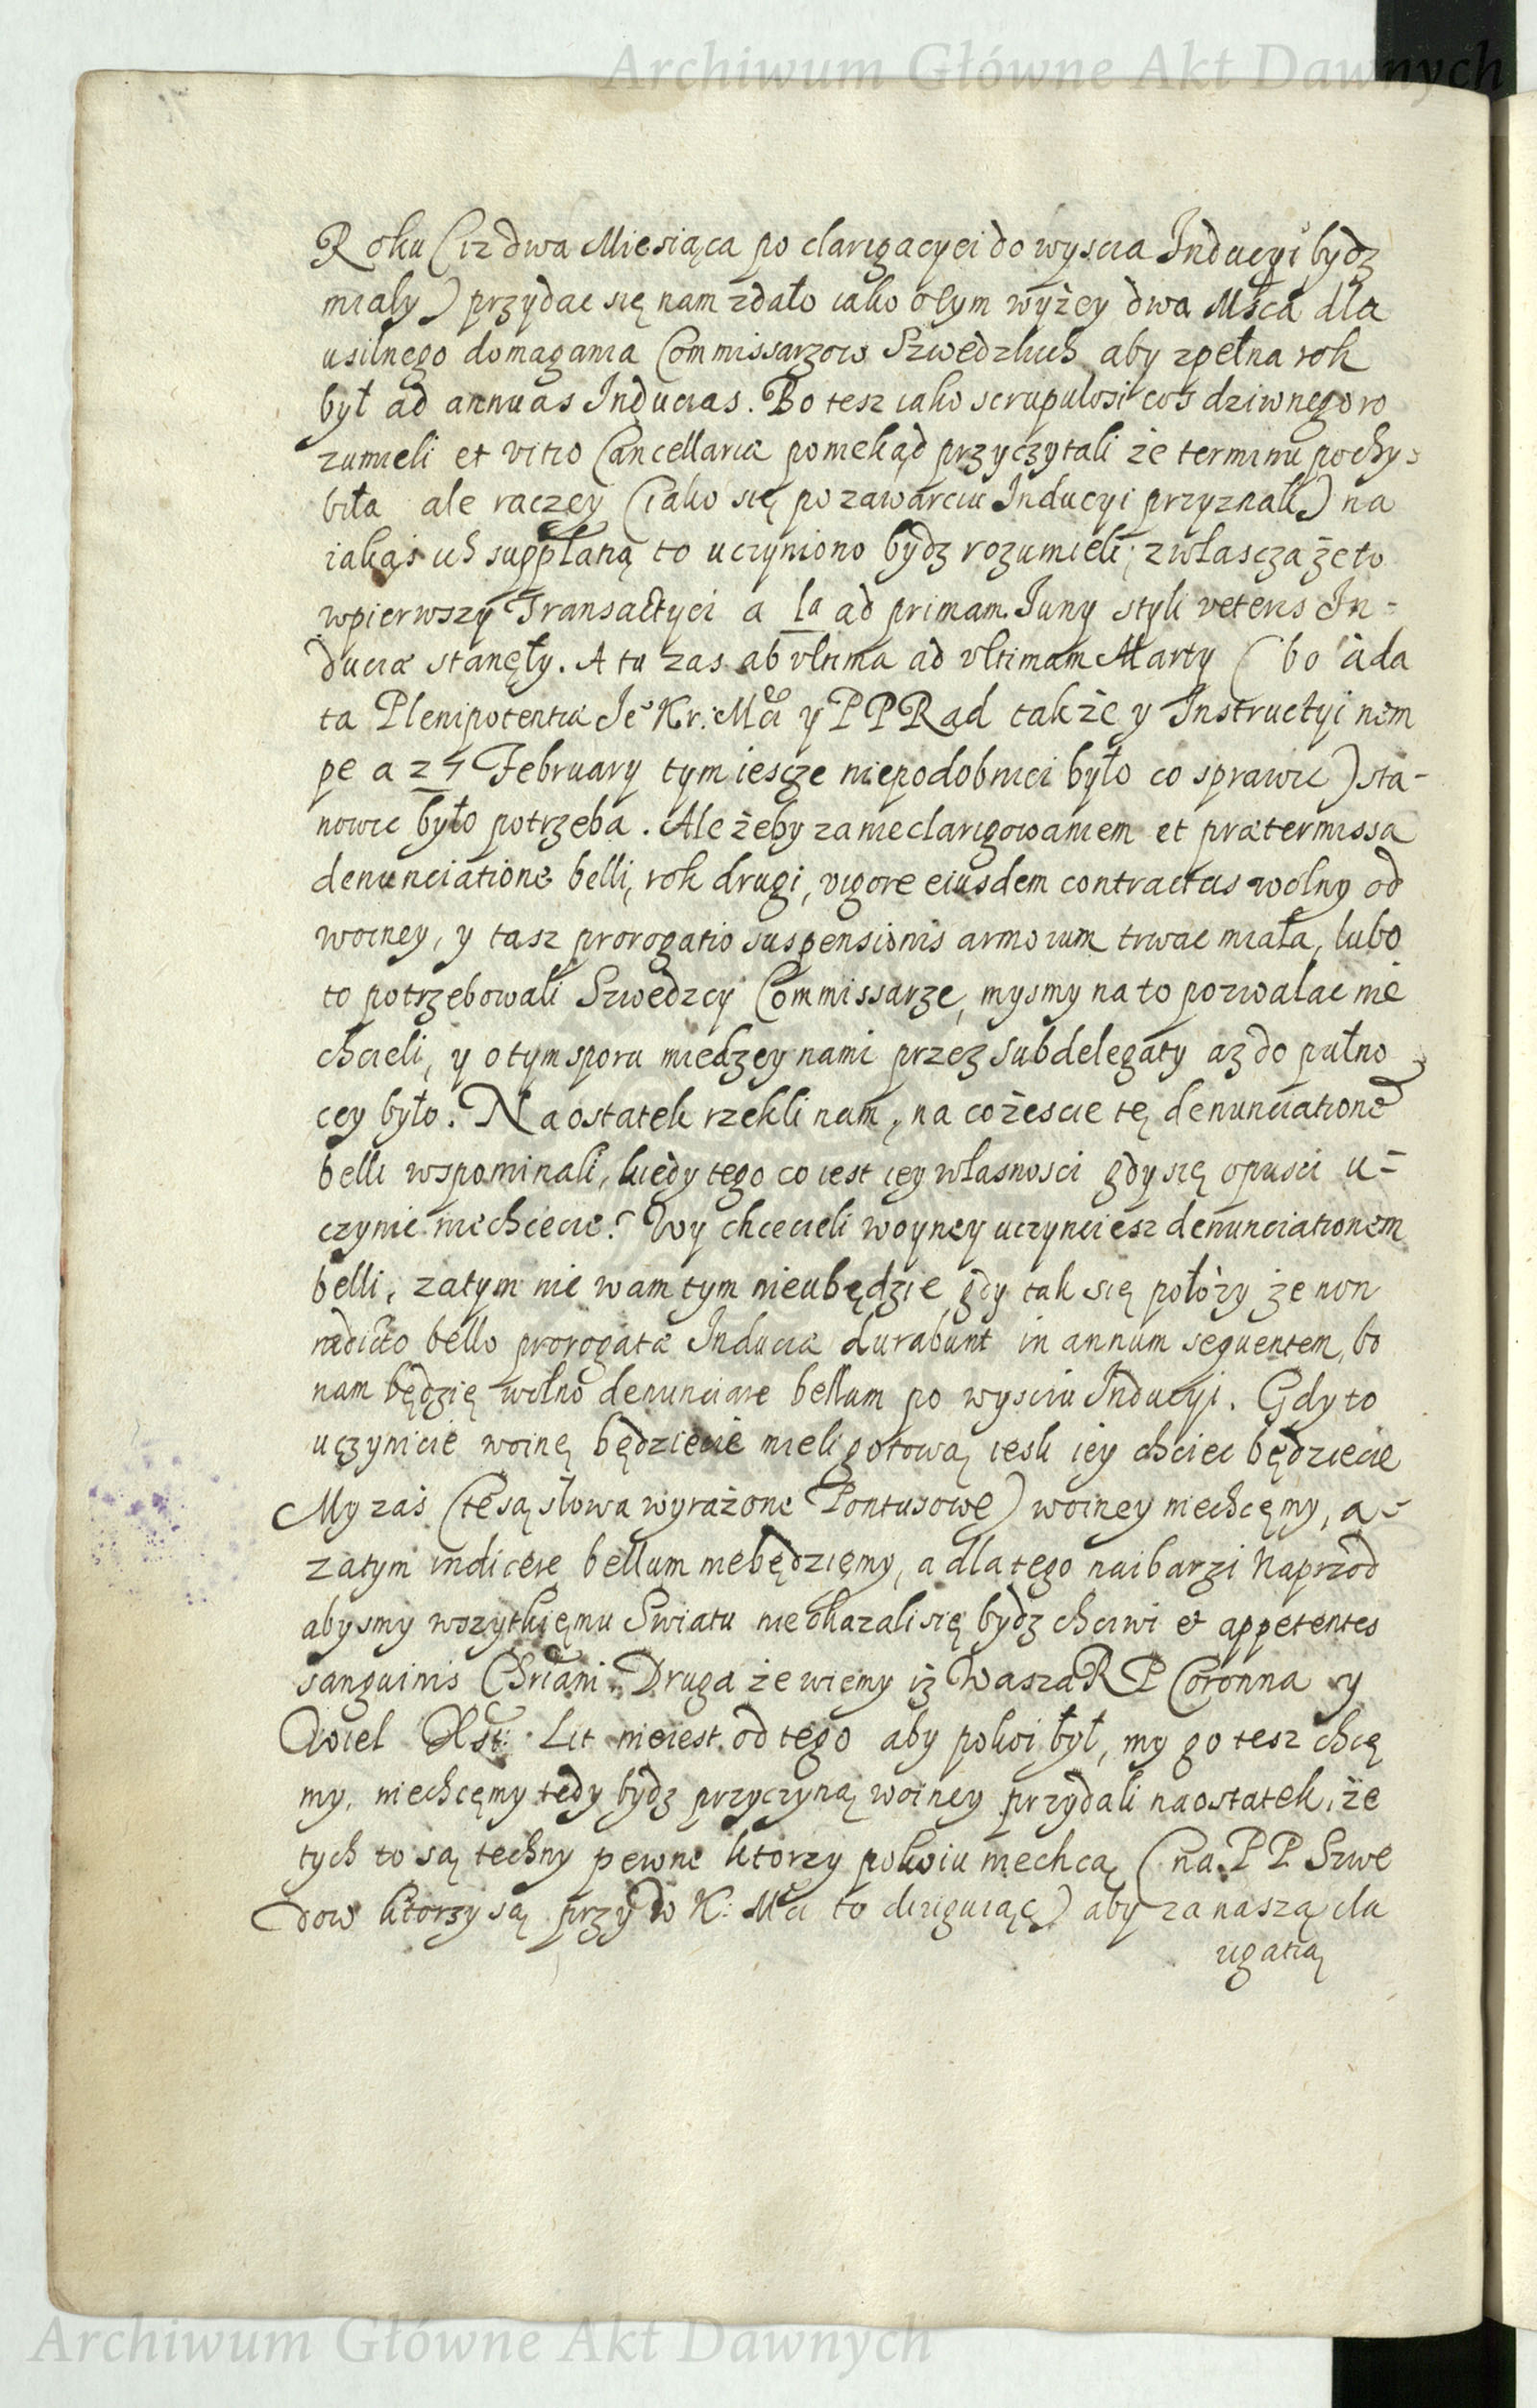 Archiwum Główne Akt Dawnych
Roku (iz dwa Miesiąca po clarigacyei do wyscia Inducyi bydz
miały) przydac się nam zdało iako o tym wyżey dwa Msca dla
usilnego domagania Commissarzow Szwedzkich aby zpełna rok
był ad annuas Inducias. Bo tesz iako scrupulosi cos dziwnego ro
zumieli et vitio Cancellariæ poniekąd przyczytali że terminu pochy-
biła ale raczey (iako się po zawarciu Inducyi przyznali) na
iakąś ich supplantą to uczyniono bydz rozumieli, zwłascza że to
wpierwszy Transactyei a 1a ad primam Iuny styli veteris In-
duciæ stanęły. A tu zas ab vltima ad vltimam Marty (bo à da
ta Plenipotentiæ Je° Kr: Mci y P P Rad także y Instructyi nem
pe a 24 February tym iescze niepodobniei było co sprawic) sta-
nowic było potrzeba. Ale żeby za nieclarigowaniem et prætermissa
denunciatione belli, rok drugi, vigore eiusdem contractus wolny od
woiney, y tasz prorogatio suspensionis armorum trwac miała, lubo
to potrzebowali Szwedzcy Commissarze, mysmy na to pozwalac nie
chcieli, y o tym sporu miedzey nami przez subdelegaty az do pułno
cey było. Na ostatek rzekli nam, na cożescie tę denunciatione
belli wspominali, kiedy tego co iest iey własnosci gdy się opusci u-
czynic niechcecie? Wy chcecieli woyney uczynciesz denunciationem
belli, zatym nic wam tym nieubędzie gdy tak się położy że non
indicto bello prorogatæ Induciæ durabunt in annum sequentem, bo
nam będzię wolno denunciare bellum po wysciu Inducyi. Gdy to
uczynicie woinę będziecie mieli gotową iesli iey chciec będziecie
My zaś (te są słowa wyrażone Pontusowe) woiney niechcęmy, a-
zatym indicere bellum niebędzięmy, a dla tego naibarzi Naprzod
abysmy wszytkięmu Swiatu nieokazali się bydz chciwi et appetentes
sanguinis Chriani. Druga że wiemy iz Wasza R P Coronna y
Wiel Xst: Lit nieiest od tego aby pokoi był, my go tesz chcę
my, niechcęmy tedy bydz przyczyną woiney przydali naostatek, że
tych to są techny pewne ktorzy pokoiu niechcą (na P P Szwe
dow ktorzy są przy W K: Mci to dirigując) aby za naszą cla
rigatią
Archiwum Główne Akt Dawnych